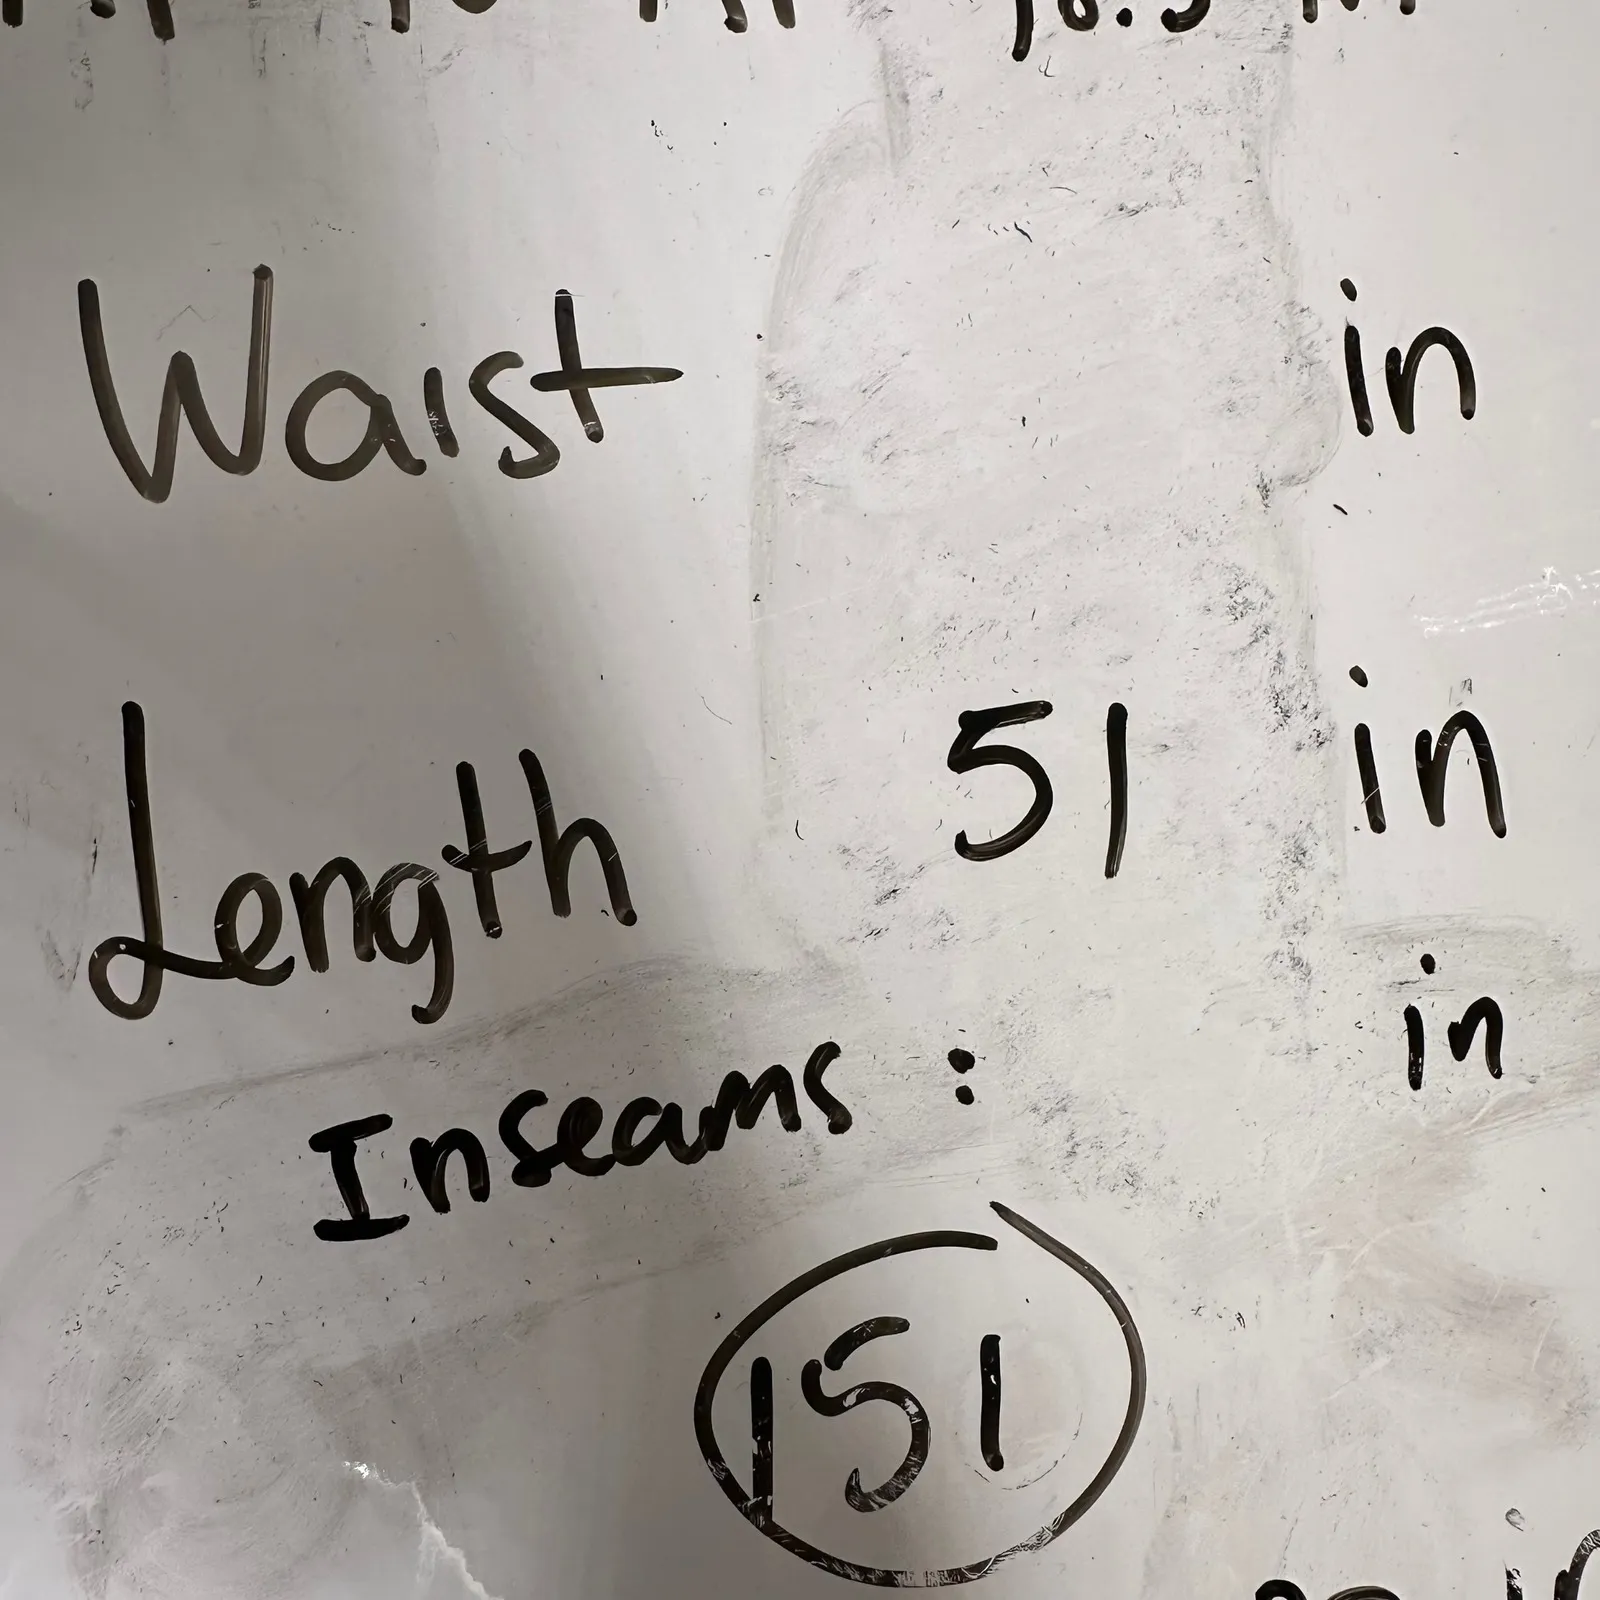 Waist in
Length 51 in
Inseams : in
151